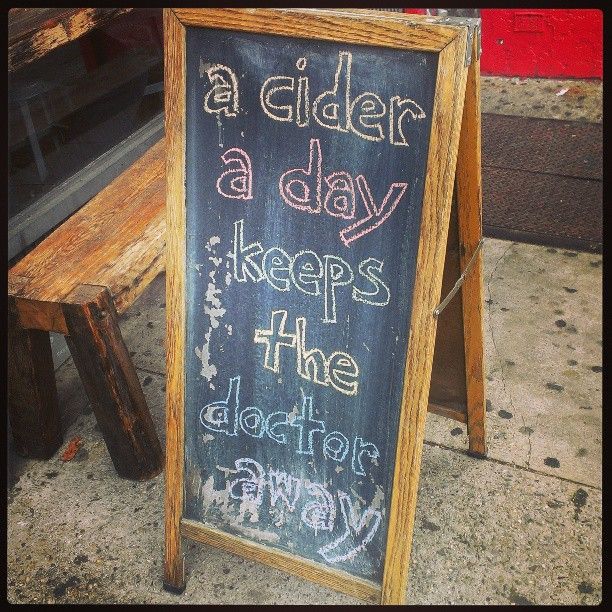 a cider
a day
keeps
the
doctor
away